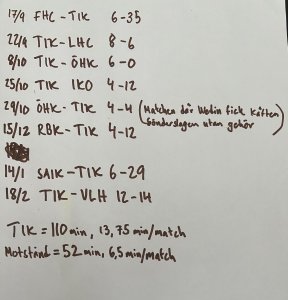 17/9 FHC-TIK 6-35
22/9 TIK-LHC 8-6
8/10 TIK-ÖHK 6-0
25/10 TIK IKO 4-12
29/10 ÖHK-TIK 4-4 (Matchen där Wedin fick käften sönderslagen utan gehör)
15/12 RBK-TIK 4-12
14/1 SAIK-TIK 6-29
18/2 TIK-VLH 12-14
TIK = 110 min, 13,75 min/match
Motstånd = 52 min, 6,5 min/match